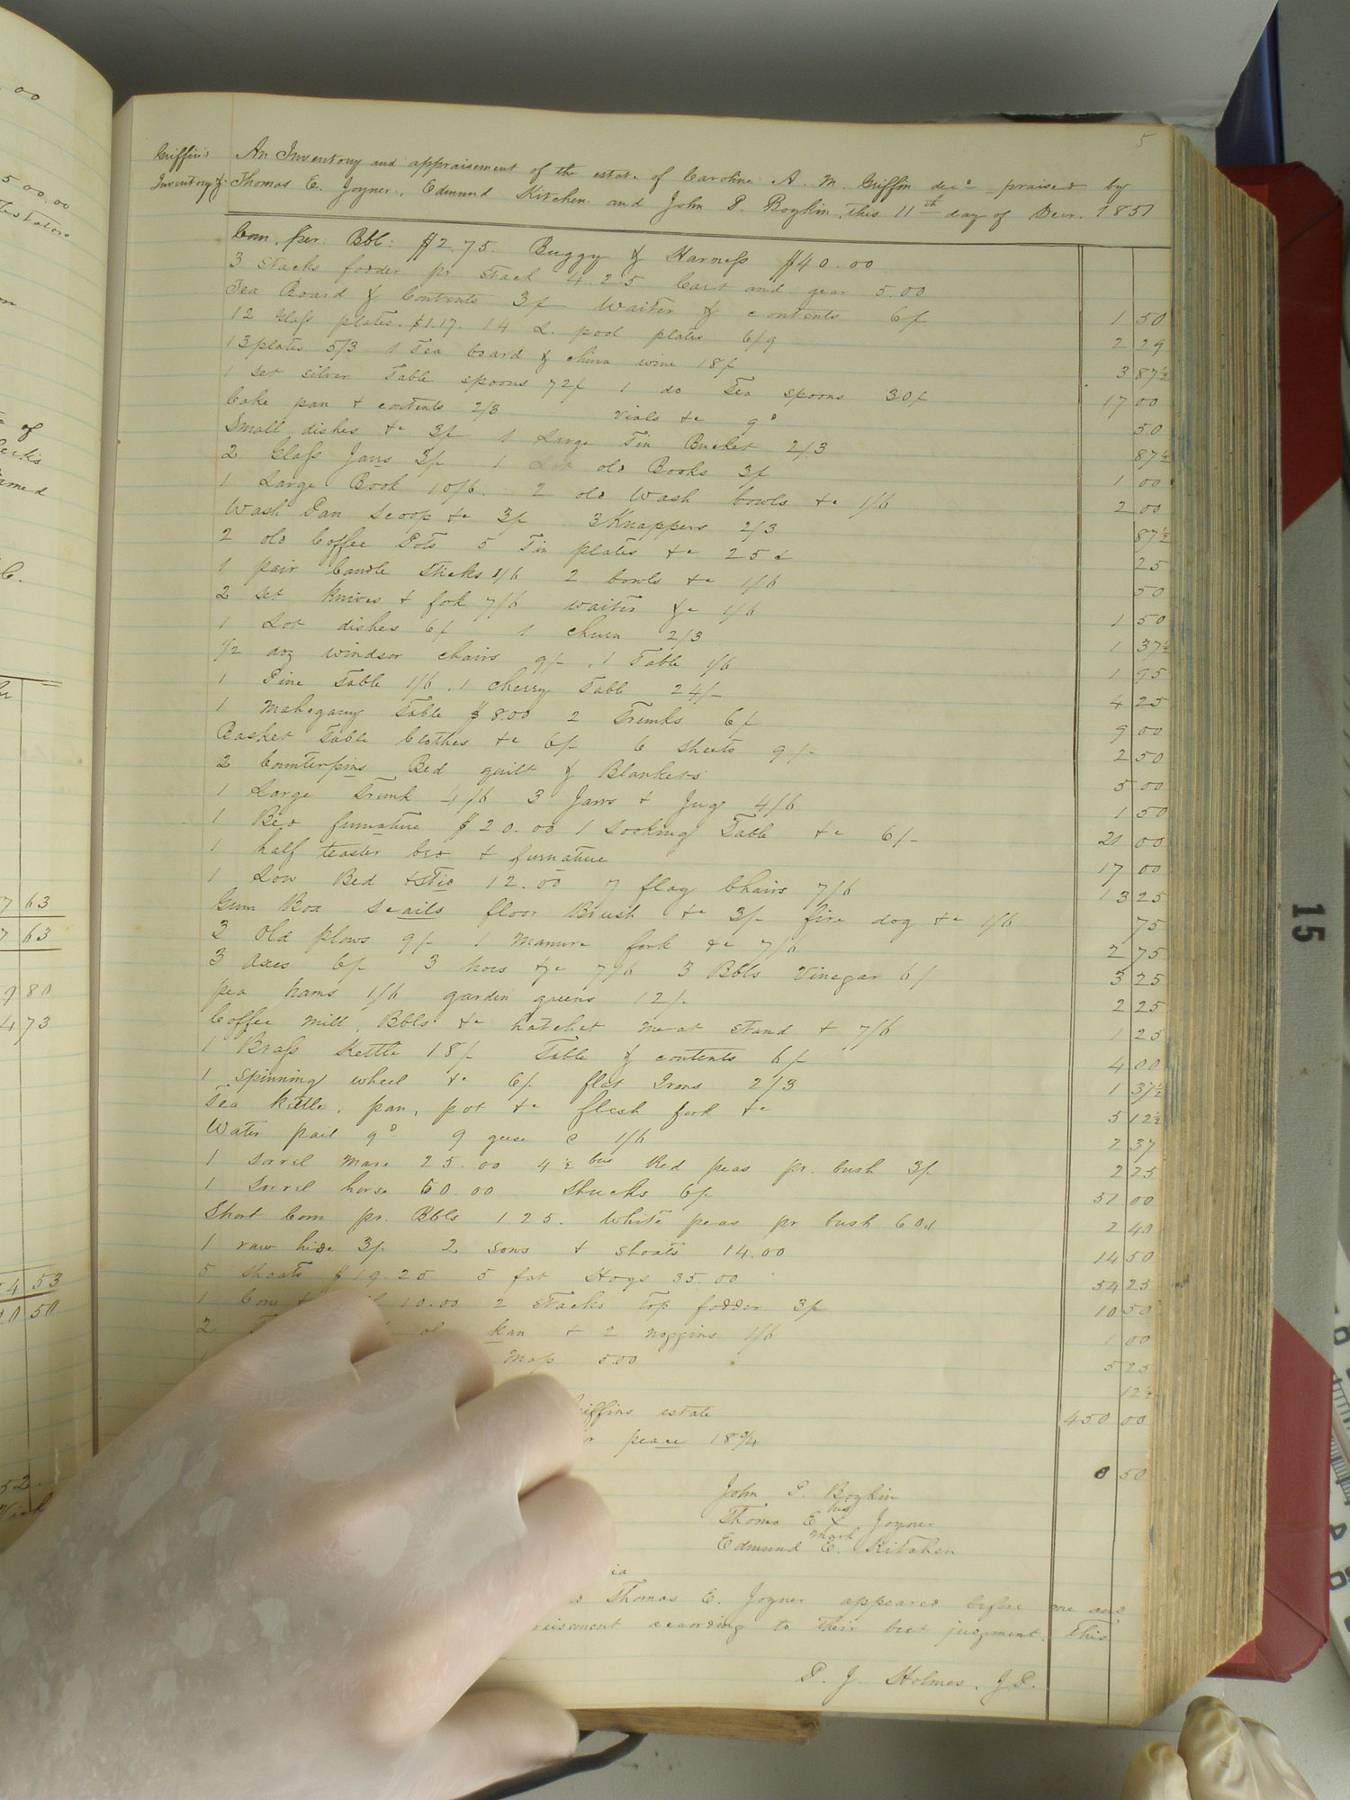 5
Griffin's
Inventory &c
An Inventory and appraisement of the estate of Caroline A. M. Griffin decd praised by
Thomas E. Joyner, Edmund Kitchen and John P. Boykin, this 11th day of Decr. 1851
Corn per Bbl: $2.75. Buggy & Harness $40.00
3 stacks fodder pr stack 4.25 Cart and gear 5.00
Tea Board & Contents 3/- Waiter & contents 6/- 1 50
12 Glass plates $1.17. 14 L. pool plates 6/9 2 29
13 plates 5/3 1 Tea board & china wine 18/- 3 87½
1 set silver Table spoons 72/- 1 do Tea spoons 30/- 17 00
Cake pan & contents 2/3 vials &c 9d 50
Small dishes &c 3/- 1 Large Tin Bucket 2/3 87½
2 Glass Jars 3/- 1 Lot old Books 3/- 1 00
1 Large Book 10/6. 2 old Wash bowls &c 1/6 2 00
Wash Pan Scoop &c 3/- 3 Knappers 2/3 87½
2 old Coffee Pots 5 Tin plates &c 25c 25
1 pair Candle sticks 1/6 2 bowls &c 1/6 50
2 set knives & fok 7/6 waiter &c 1/6 1 50
1 Lot dishes 6/- 1 churn 2/3 1 37½
1/2 doz windsor chairs 9/-. 1 Table 1/6 1 75
1 Pine Table 1/6. 1 cherry Table 24/- 4 25
1 Mahogany Table $8.00 2 Trunks 6/- 9 00
Basket Table Clothes &c 6/- 6 sheets 9/- 2 50
2 Counterpins Bed quilt & Blankets 5 00
1 Large Trunk 4/6 3 Jars & Jug 4/6 1 50
1 Bed furnature $20.00 1 Looking Table &c 6/- 21 00
1 half teaster bed & furnature 17 00
1 Low Bed &Std 12.00 7 flag Chairs 7/6 13 25
Gum Box Seails floor Brush &c 3/- fire dog &c 1/6 75
3 Old plows 9/- 1 Manure fork &c 7/6 2 75
3 axes 6/- 3 hoes &c 7/6 3 Bbls Vinegar 6/- 3 25
pea hams 1/6 garden greens 12/- 2 25
Coffee Mill, Bbls &c hatchet meat stand & 7/6 1 25
1 Brass Kettle 18/- Table & contents 6/- 4 00
1 Spinning wheel &c 6/- flat Irons 2/3 1 37½
Tea Kittle, pan, pot &c flesh fork &c 5 12½
Water pail 9d 9 geese @ 1/6 2 37
1 Sorrel mare 25.00 4½ bus Red peas pr. bush 3/- 2 25
1 Sorrel horse 50.00 Shucks 6/- 51 00
Short Corn pr. Bbls 125. White peas pr bush 60d 2 40
1 raw hide 3/- 2 sows & shoats 14.00 14 50
5 shoats $19.25 5 fat Hogs 35.00 54 25
1 Cow & 10.00 2 Stacks Top fodder 3/- 10 50
2 kan & 2 noggins 1/6 1 00
Mass 5.00 5 25
12½
Griffins estate 450 00
peace 18¾
0 50
John P. Boykin
Thomas E his X mark Joyner
Edmund E. Kitchen
Thomas E. Joyner appeared before me and
according to their best judgment. This
P. J. Holmes, J.P.